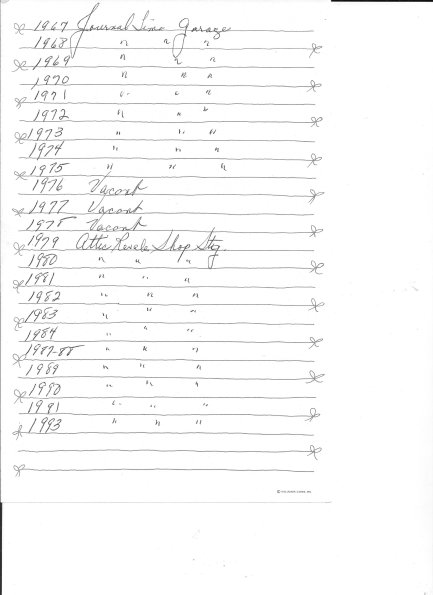 1967 Journal Time Garage
1968 " " "
1969 " " "
1970 " " "
1971 " " "
1972 " " "
1973 " " "
1974 " " "
1975 " " "
1976 Vacant
1977 Vacant
1978 Vacant
1979 Attic Shop Stg.
1980 " " "
1981 " " "
1982 " " "
1983 " " "
1984 " " "
1987-88 " " "
1989 " " "
1990 " " "
1991 " " "
1993 " " "